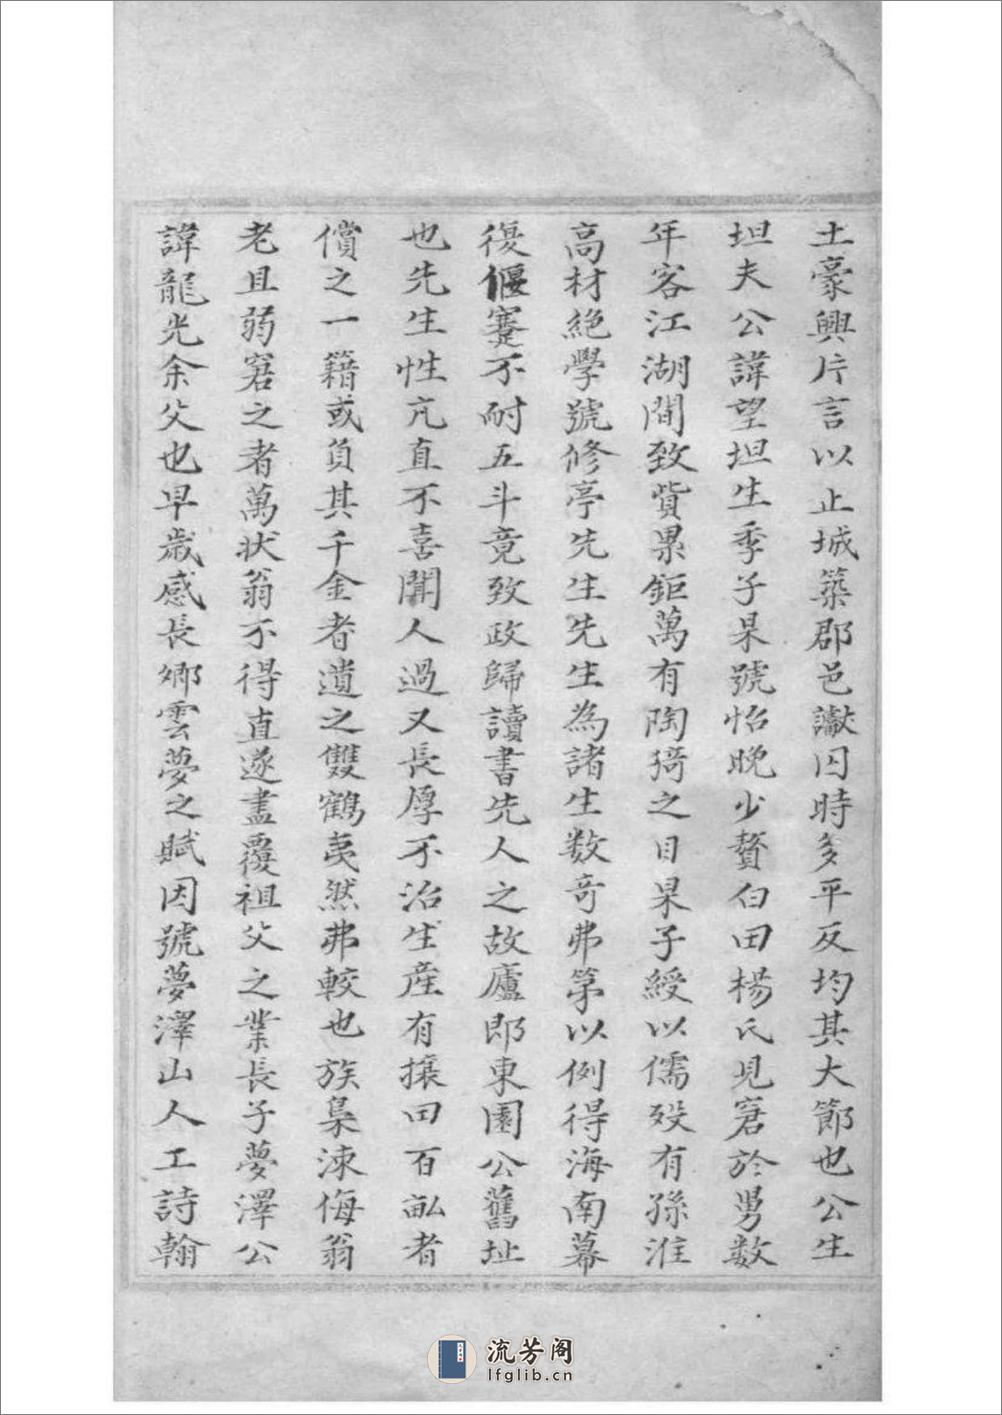 土豪興片言以止城築郡邑讞囚時多平反均其大節也公生
坦夫公諱望坦生季子杲號怡晚少贅白田楊氏見窘於男数
年客江湖間致貲累鉅萬有陶猗之目杲子綬以儒殁有孫淮
高材絶學號修亭先生先生為諸生数奇弗第以例得海南幕
復偃蹇不耐五斗竟致政歸讀書先人之故廬即東園公舊址
也先生性亢直不喜聞人過又長厚不治生産有攘田百畝者
償之一籍或負其千金者遺之雙鶴夷然弗較也族梟涑侮翁
老且弱窘之者萬状翁不得直遂盡覆祖父之業長子夢澤公
諱龍光余父也早歲感長卿雲夢之賦因號夢澤山人工詩翰
流芳阁
lfglib.cn